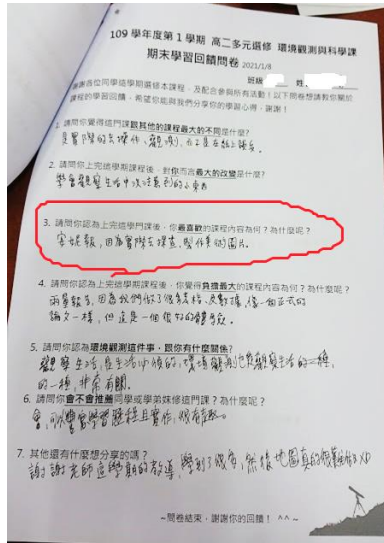 109 學年度第1學期 高二多元選修 環境觀測與科學課
期末學習回饋問卷 2021/1/8
班級 姓
謝謝各位同學這學期選修本課程,及配合參與所有活動!以下問卷想請教你關於
課程的學習回饋,希望你能與我們分享你的學習心得,謝謝!
1. 請問你覺得這門課跟其他的課程最大的不同是什麼?
是實際的去操作、觀測,而不是在紙上談兵。
2. 請問你上完這學期課程後,對你而言最大的改變是什麼?
學會觀察生活中沒注意到的小東西
3. 請問你認為上完這學門課後,你最喜歡的課程內容為何?為什麼呢?
害蟲報,因為實際去探查,製作系列圖片。
4. 請問你認為上完這學期課程後,你覺得負擔最大的課程內容為何?為什麼呢?
雨量報告,因為我們做了很多表格、及數據,像一個正式的
論文一樣,但這是一個很好的體驗。
5. 請問你認為環境觀測這件事,跟你有什麼關係?
觀察生活,是生活必備的,環境觀測也是觀察生活的一種,
的一種,非常有關。
6. 請問你會不會推薦同學或學弟妹修這門課?為什麼呢?
會,可以豐富學習歷程且實作,很有趣。
7. 其他還有什麼想分享的嗎?
謝謝老師這學期的教導,學到了很多,然後地圖真的很難做 XD
~問卷結束,謝謝你的回饋! ^^ ~